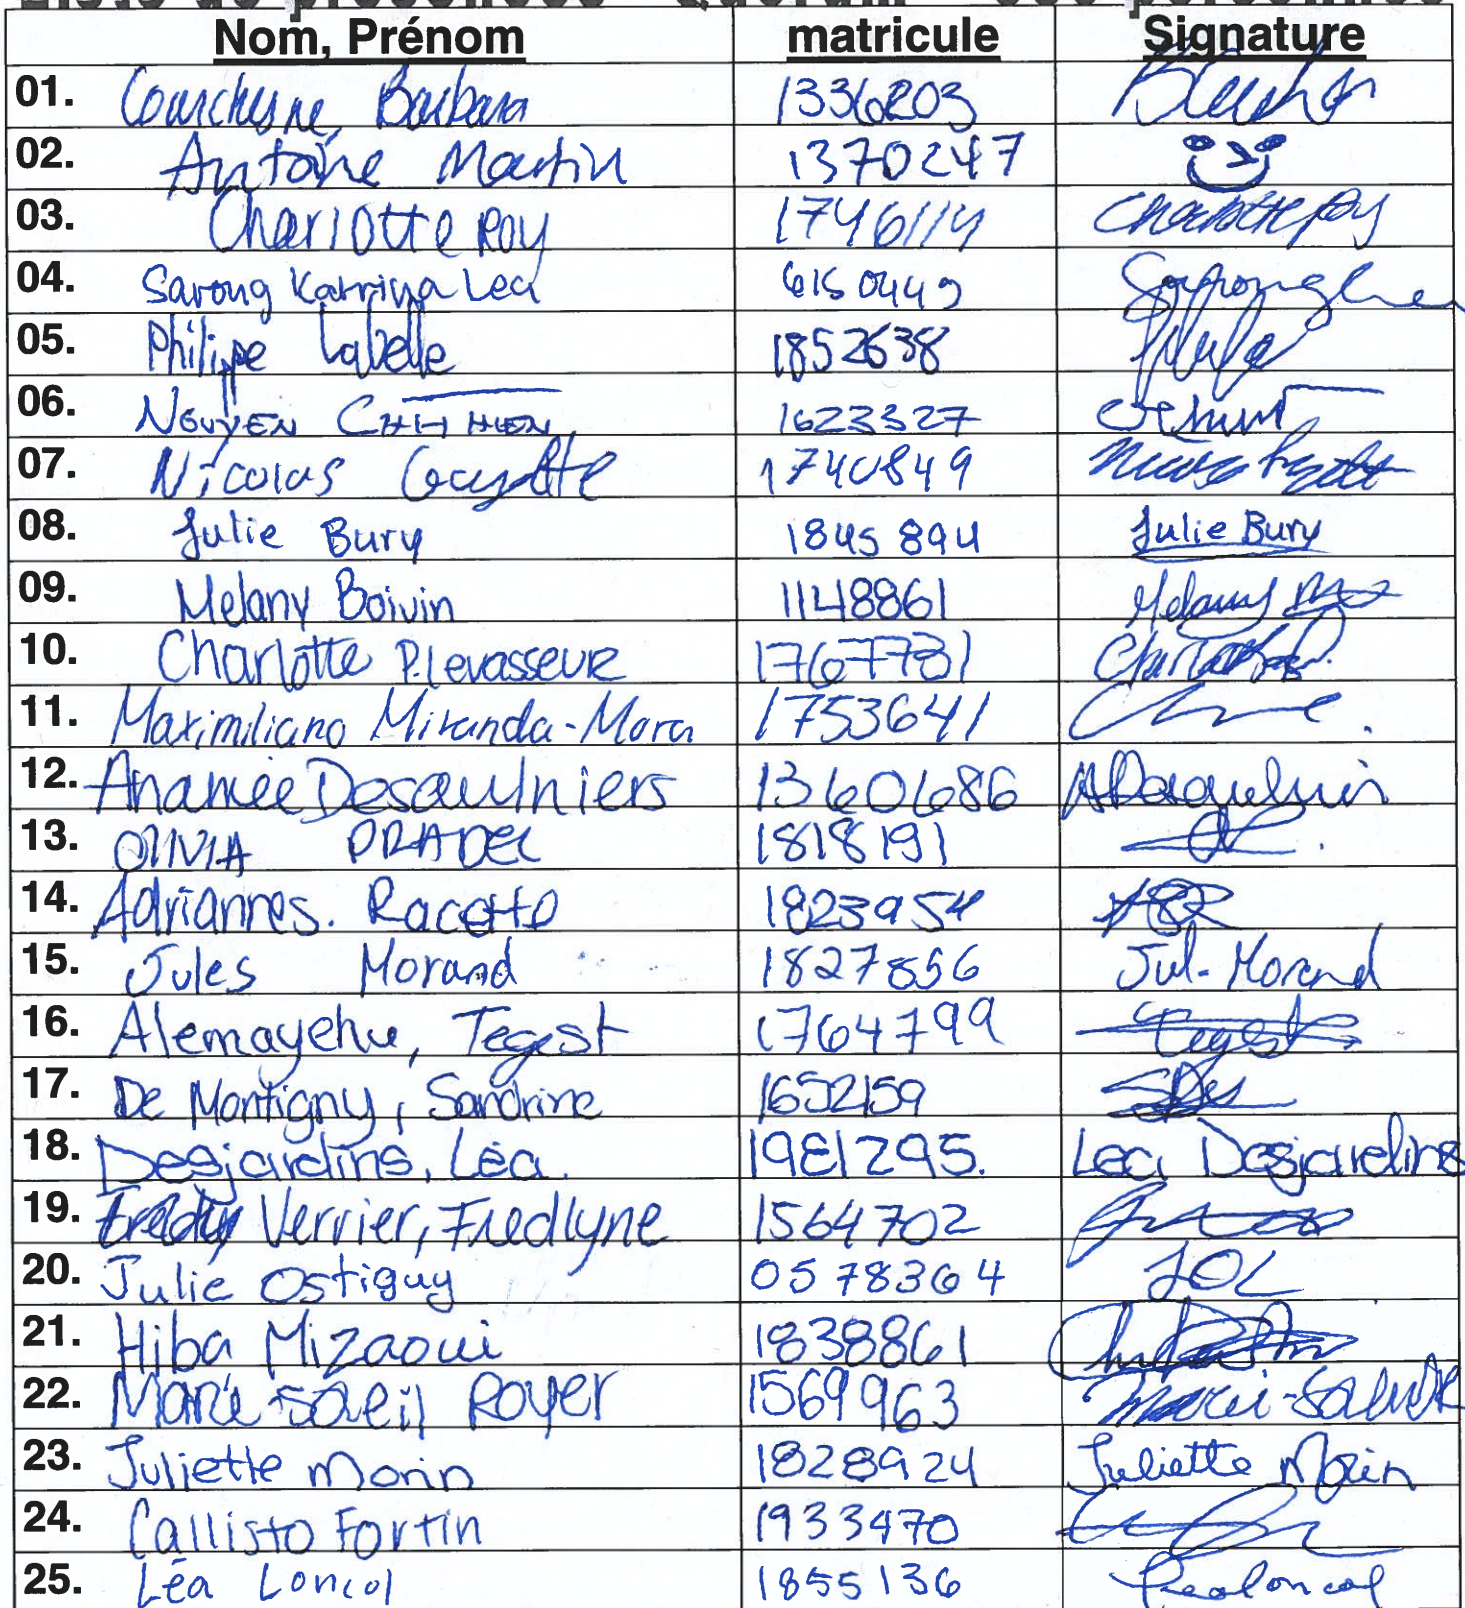 Liste de présences - Quorum
Nom, Prénom matricule Signature
01. Courchesne, Barbara 1336203
02. Antoine Martin 1370247
03. Charlotte Roy 1746114 Charlotte Roy
04. Sarong Katrina Lea 6150449
05. Philippe Labelle 1852638
06. NGUYEN CHI THIEN 1623327
07. Nicolas Guyotte 1740849
08. Julie Bury 1845894 Julie Bury
09. Melany Boivin 1148861 Melany
10. Charlotte P.Levasseur 1767731
11. Maximiliano Miranda-Mora 1753641
12. Anamée Desaulniers 1360686 ADesaulniers
13. OLIVIA PRADEL 1818191
14. Adrianne S. Racette 1823954
15. Jules Morand 1827856 Jul-Morand
16. Alemayehu, Tegest 1764799 Tegest
17. De Montigny, Sandrine 1652159
18. Desjardins, Léa. 1981295. Léa Desjardins
19. Verrier, Fredlyne 1564702
20. Julie Ostiguy 0578364 JOL
21. Hiba Mizaoui 1838861
22. Marie-soleil Royer 1569963
23. Juliette Morin 1828924 Juliette Morin
24. Callisto Fortin 1933470
25. Léa Loncol 1855136